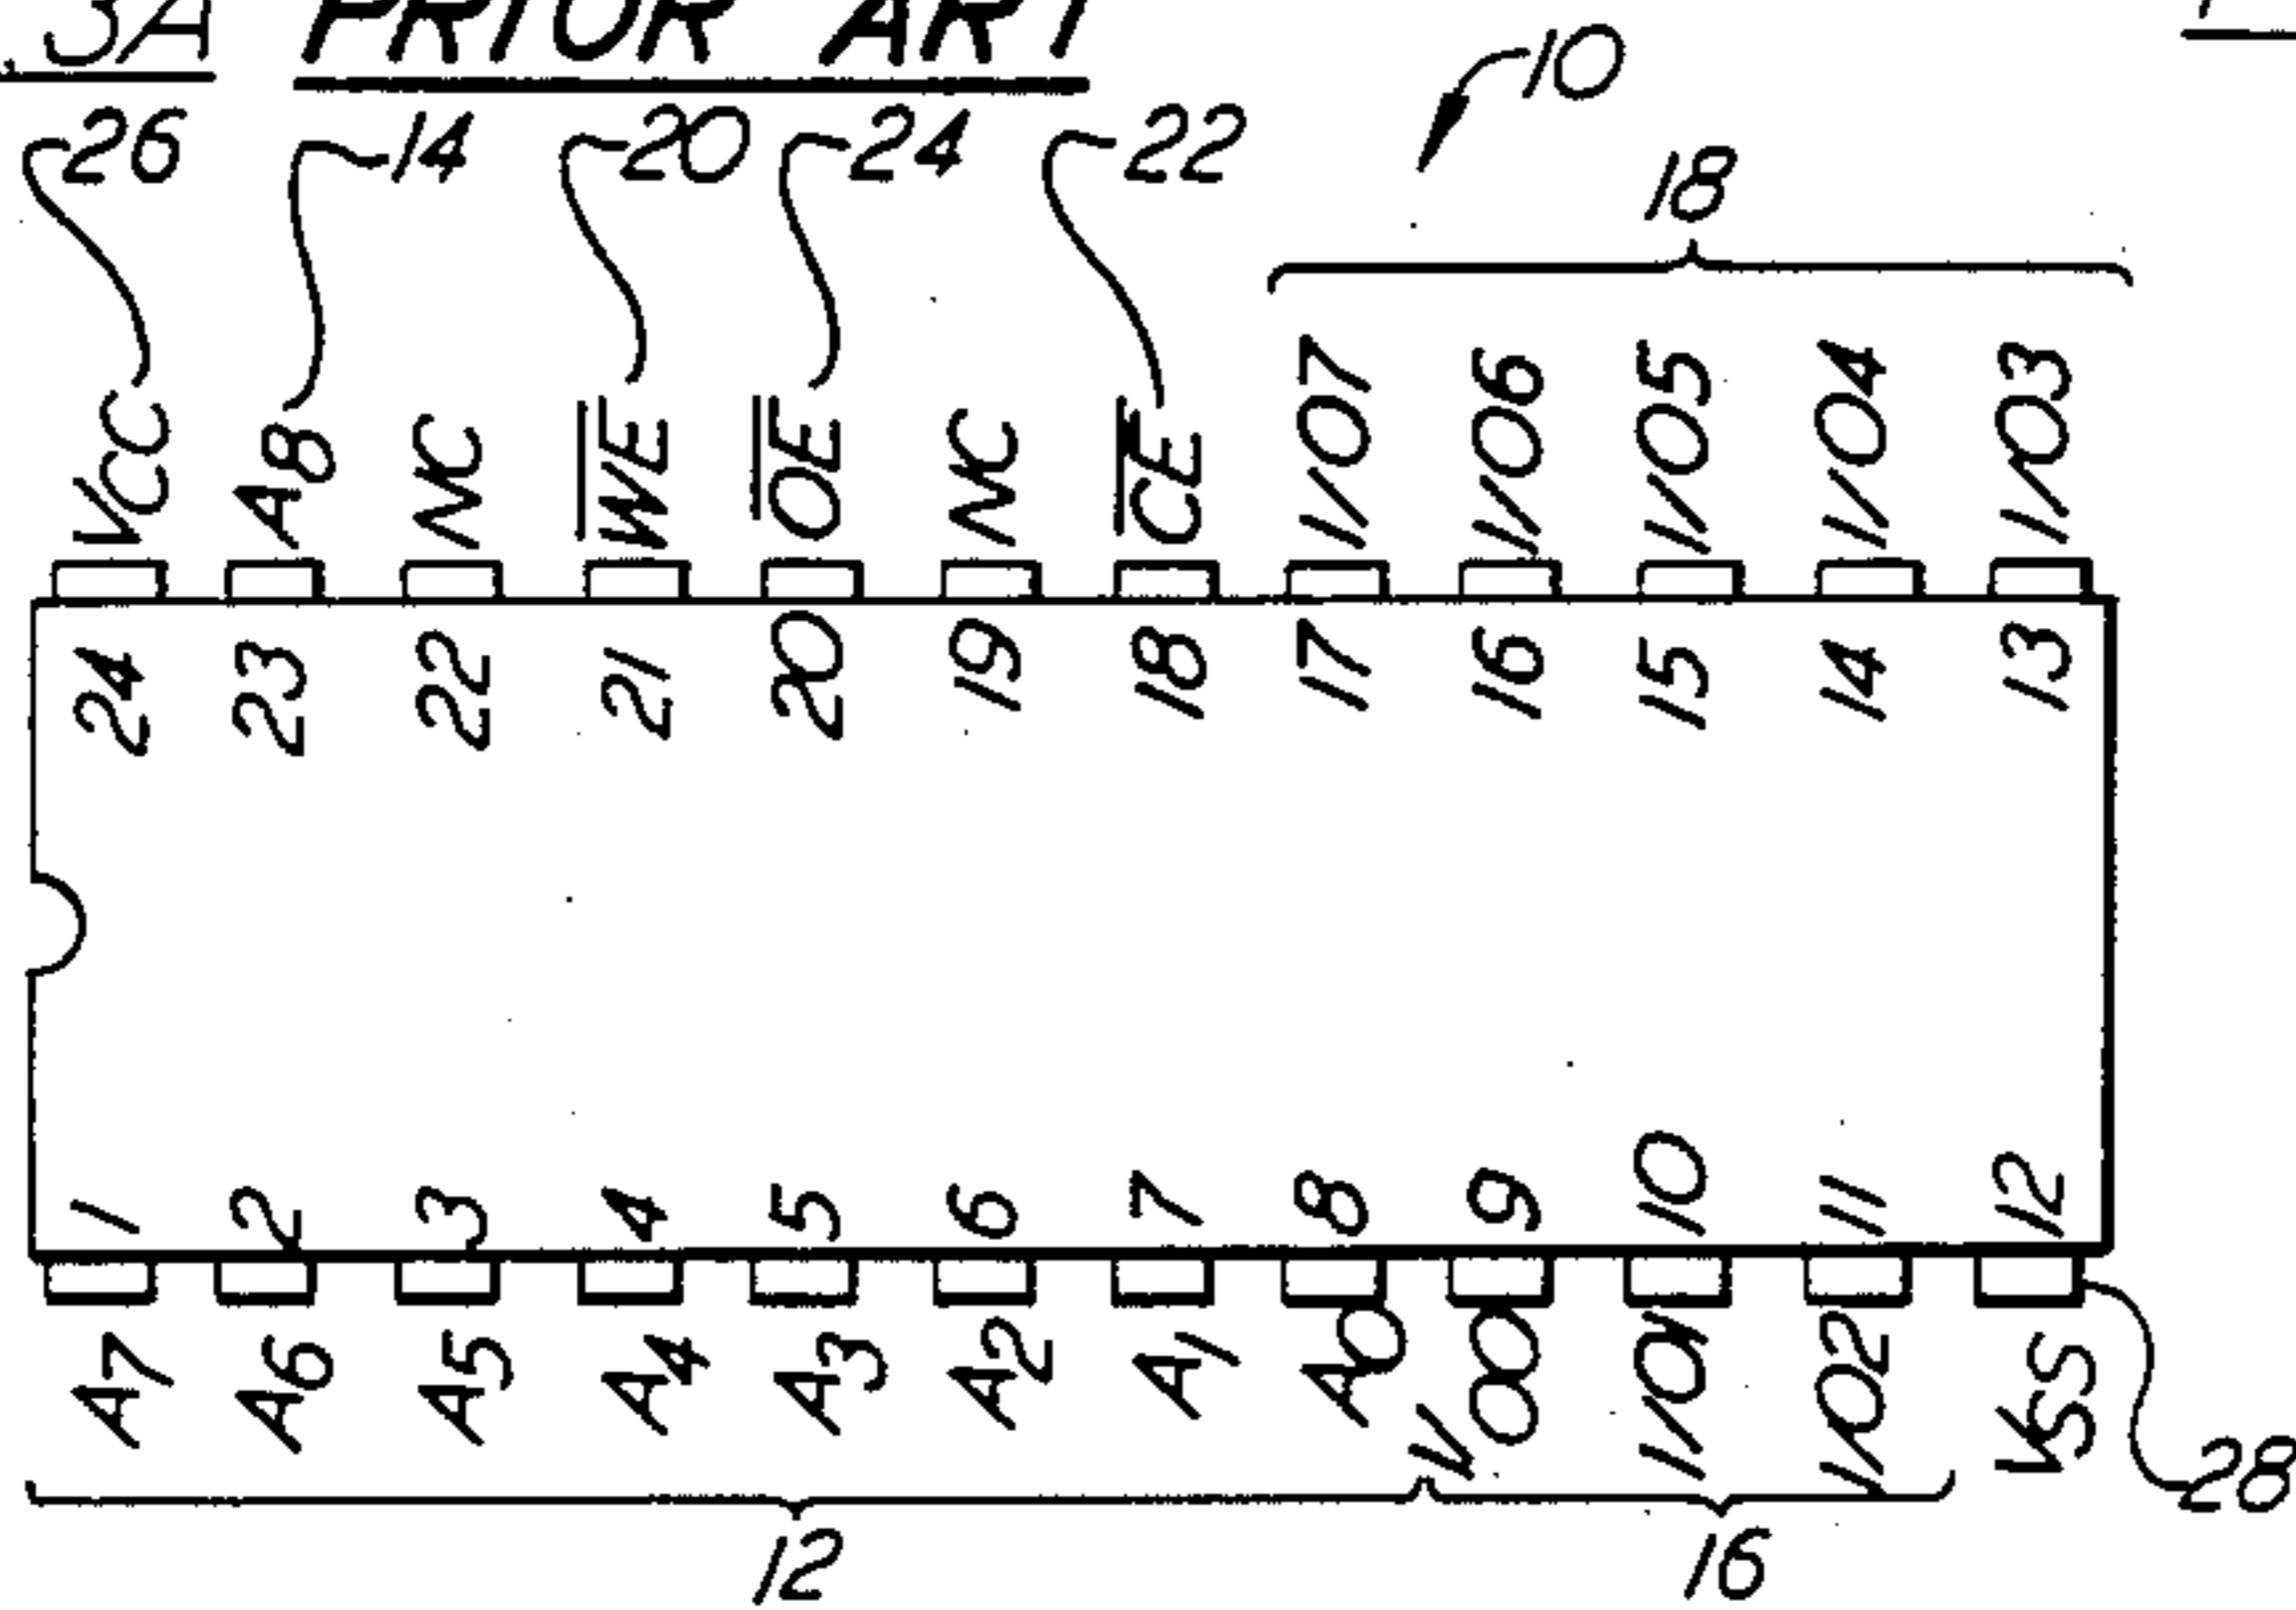 .3A PRIOR ART
10
26 14 20 24 22
18
VCC A8 NC WE OE NC CE I/O7 I/O6 I/O5 I/O4 I/O3
24 23 22 21 20 19 18 17 16 15 14 13
1 2 3 4 5 6 7 8 9 10 11 12
A7 A6 A5 A4 A3 A2 A1 A0 I/O0 I/O1 I/O2 VSS
28
12 16